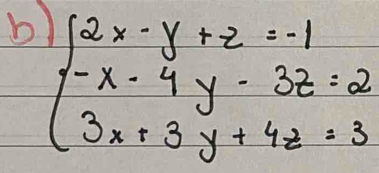 b) 2x - y + z = -1
-x - 4y - 3z = 2
3x + 3y + 4z = 3